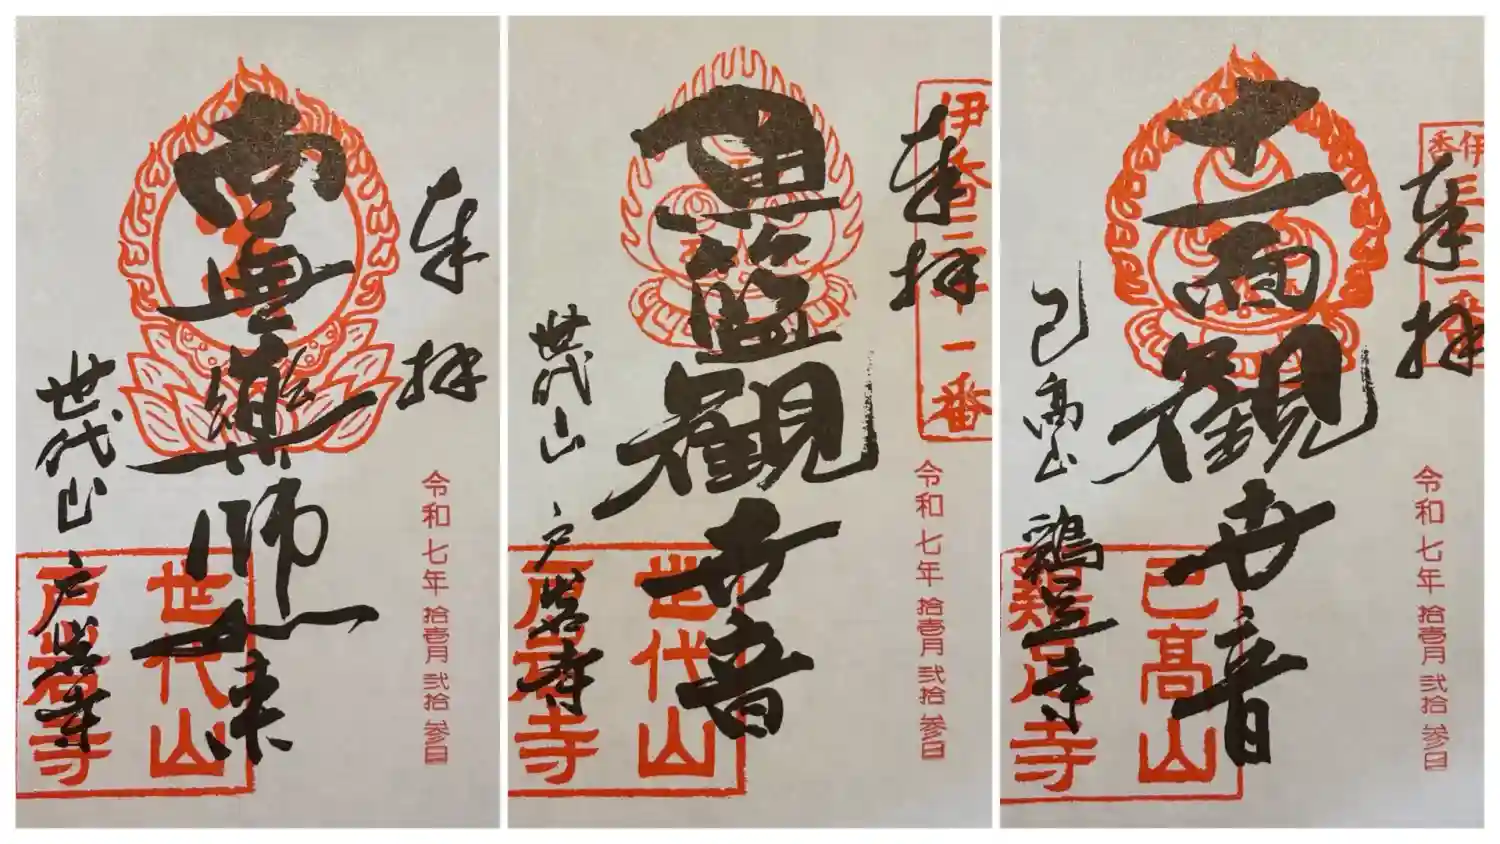 奉拝
令和七年拾壱月弐拾参日
南無薬師如来
世代山
戸岩寺
世代山
戸岩寺
伊香三十一番
奉拝
令和七年拾壱月弐拾参日
魚籃観世音
世代山
戸岩寺
世代山
戸岩寺
奉拝
令和七年拾壱月弐拾参日
十一面観世音
己高山
鶏足寺
己高山
鶏足寺